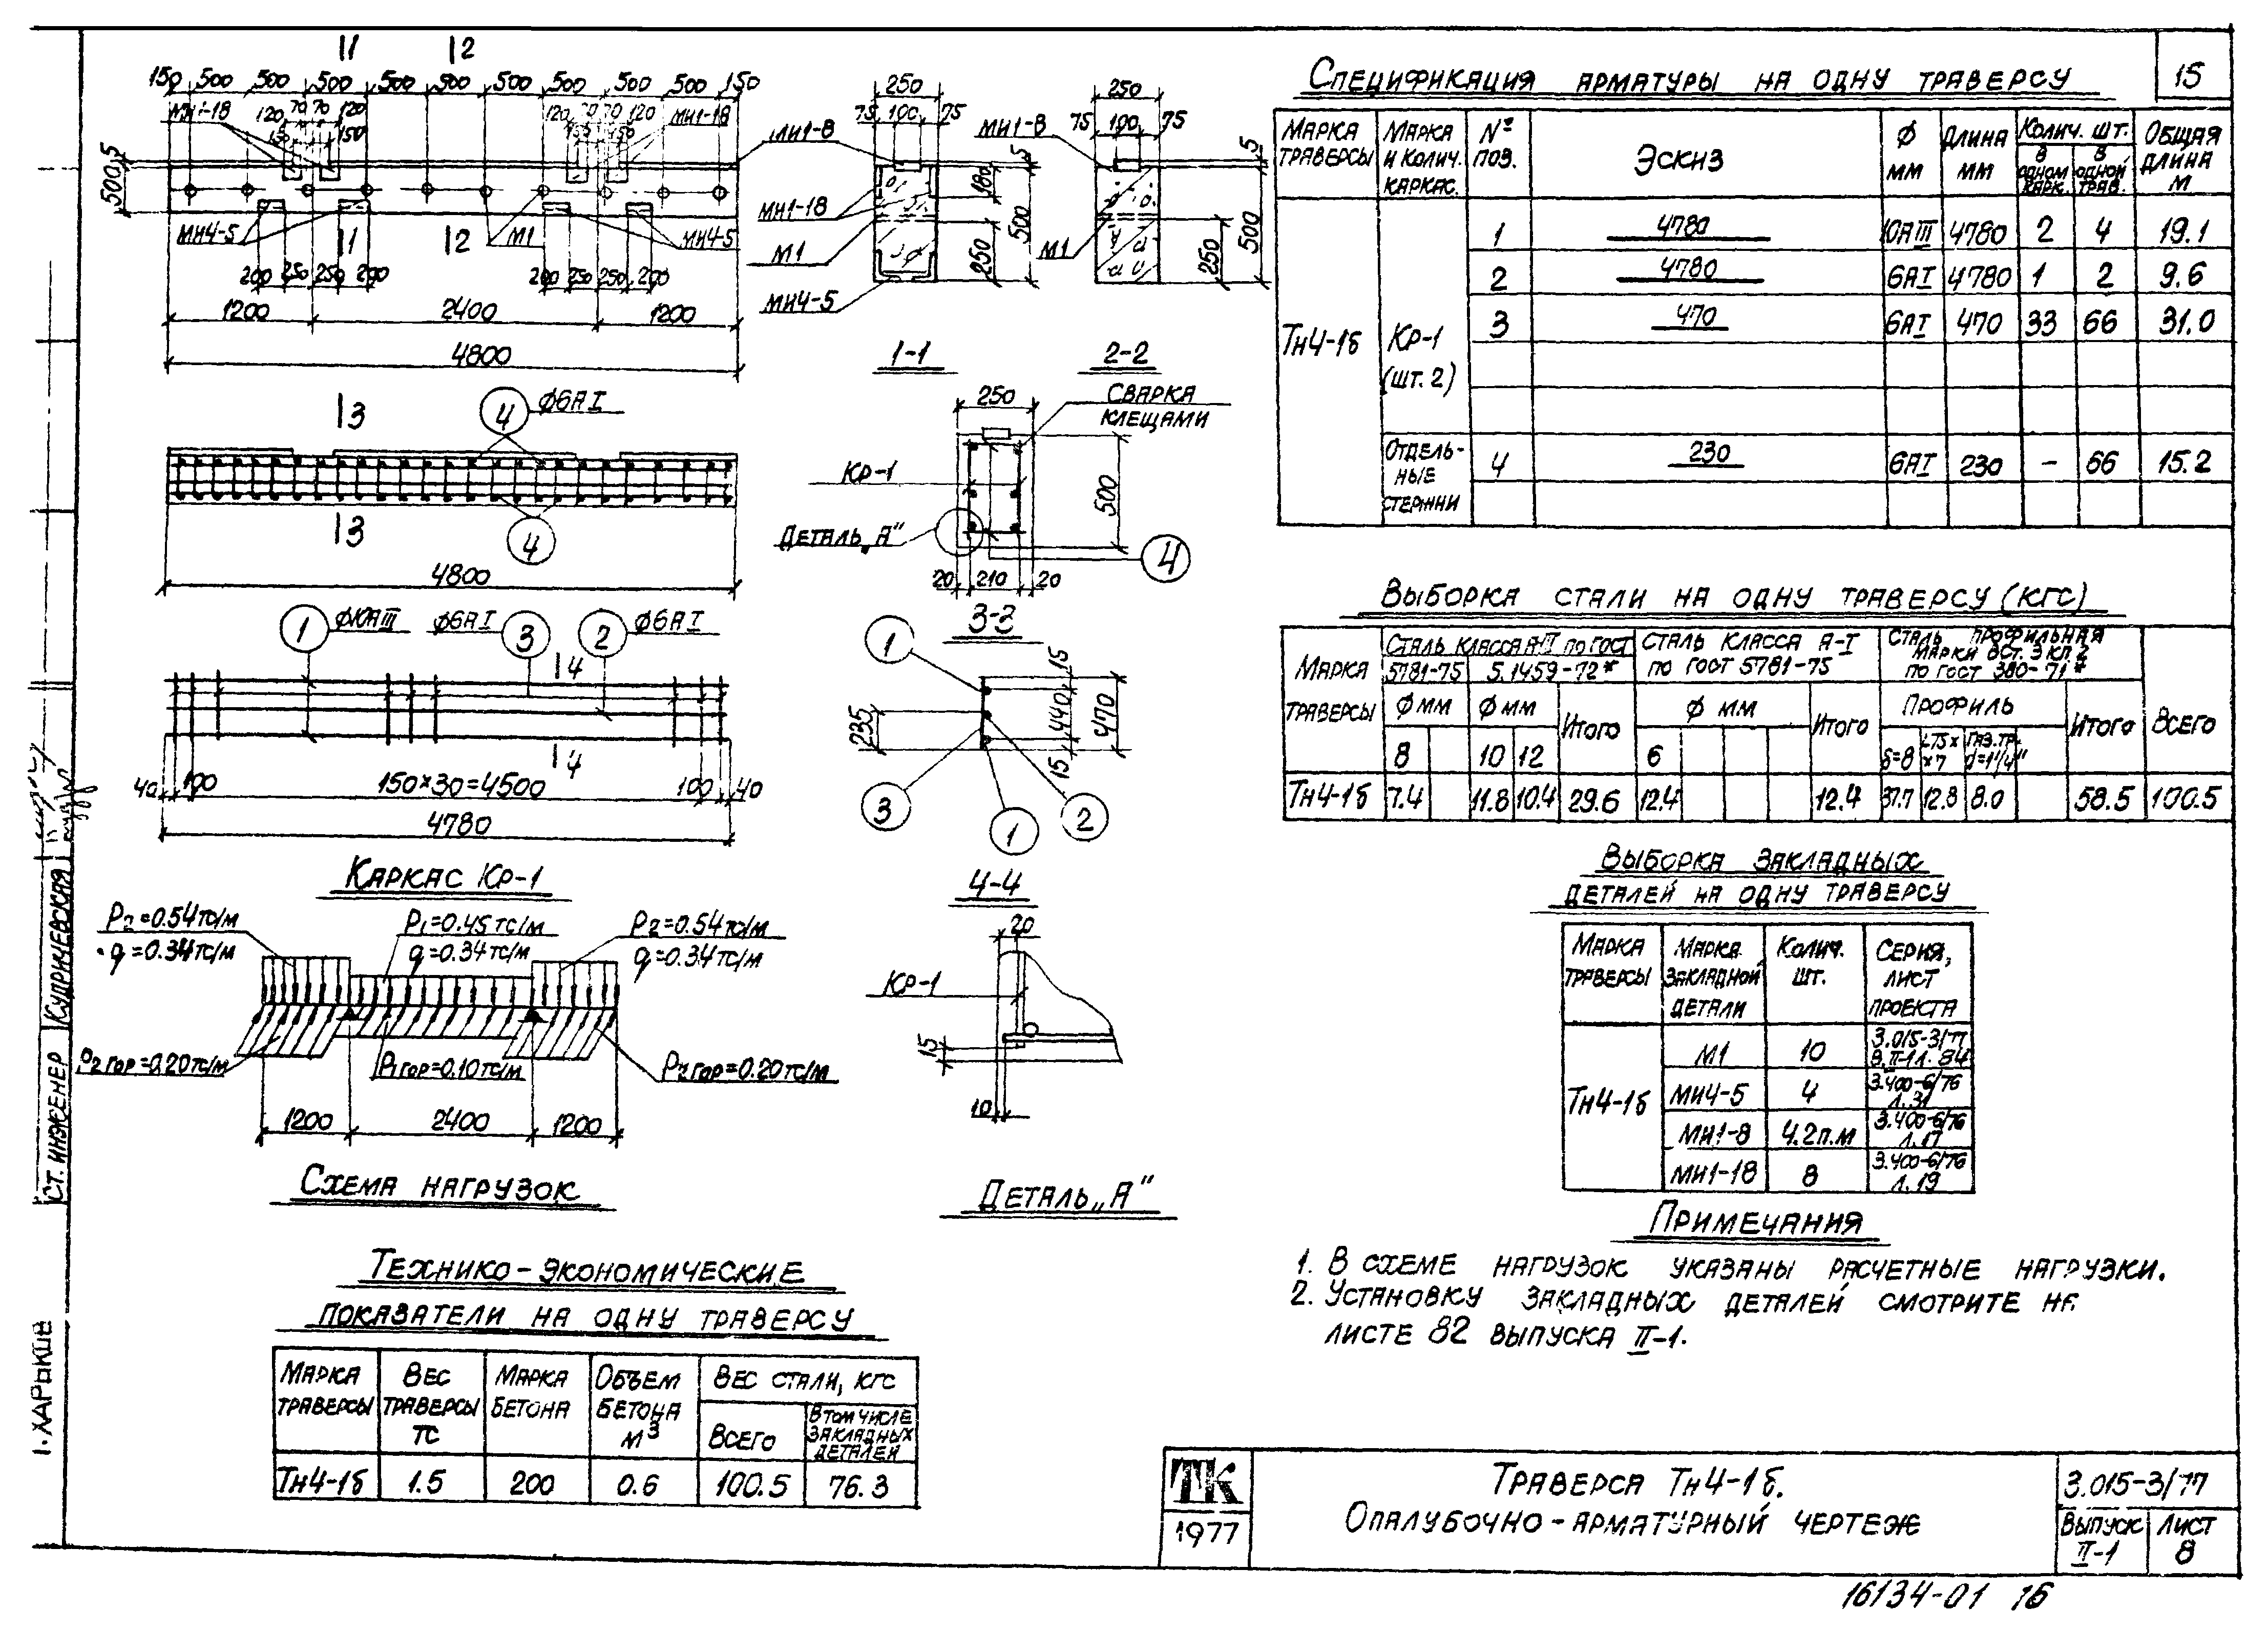 15
1 2
150 500 500 500 500 500 500 500 500 500 150
МН1-18 120 70 70 120 150 150
120 70 70 120 МН1-18
500 5
МН4-5 1 2 М1 МН4-5
200 250 250 200 200 250 250 200
1200 2400 1200
4800
250
75 100 75
МН1-8
МН1-18
М1
МН4-5
5 180 500 250
1-1
250
75 100 75
МН1-8
М1
5 500 250
2-2
3 4 ϕ6АI
3 4
4800
250
СВАРКА
КЛЕЩАМИ
КР-1
500
ДЕТАЛЬ „А"
4
20 210 20
3-3
1 ϕ10АIII ϕ6АI 3 2 ϕ6АI
4
4
40 100 150×30=4500 100 40
4780
КАРКАС КР-1
1
235
15 440 15 470
3 2
1
4-4
P2=0.54тс/м P1=0.45тс/м P2=0.54тс/м
q=0.34тс/м q=0.34тс/м q=0.34тс/м
P2гор=0.20тс/м P1гор=0.10тс/м P2гор=0.20тс/м
1200 2400 1200
СХЕМА НАГРУЗОК
20
КР-1
15
10
ДЕТАЛЬ „А"
ТЕХНИКО-ЭКОНОМИЧЕСКИЕ
ПОКАЗАТЕЛИ НА ОДНУ ТРАВЕРСУ
МАРКА ТРАВЕРСЫ ВЕС ТРАВЕРСЫ ТС МАРКА БЕТОНА ОБЪЕМ БЕТОНА М3 ВЕС СТАЛИ, КГС
ВСЕГО В ТОМ ЧИСЛЕ ЗАКЛАДНЫХ ДЕТАЛЕЙ
ТН4-1б 1.5 200 0.6 100.5 76.3
СПЕЦИФИКАЦИЯ АРМАТУРЫ НА ОДНУ ТРАВЕРСУ
МАРКА ТРАВЕРСЫ МАРКА И КОЛИЧ. КАРКАС. № ПОЗ. ЭСКИЗ ϕ ММ ДЛИНА ММ КОЛИЧ. ШТ. ОБЩАЯ ДЛИНА М
В ОДНОМ КАРК. В ОДНОЙ ТРАВ.
ТН4-1б КР-1 (ШТ. 2)
1 4780 10АIII 4780 2 4 19.1
2 4780 6АI 4780 1 2 9.6
3 470 6АI 470 33 66 31.0
ОТДЕЛЬНЫЕ СТЕРЖНИ 4 230 6АI 230 - 66 15.2
ВЫБОРКА СТАЛИ НА ОДНУ ТРАВЕРСУ (КГС)
МАРКА ТРАВЕРСЫ СТАЛЬ КЛАССА А-III ПО ГОСТ СТАЛЬ КЛАССА А-I ПО ГОСТ 5781-75 СТАЛЬ ПРОФИЛЬНАЯ МАРКИ ВСТ. 3 КП 2 ПО ГОСТ 380-71*
5781-75 5.1459-72*
ϕ ММ ϕ ММ ИТОГО ϕ ММ ИТОГО ПРОФИЛЬ ИТОГО ВСЕГО
8 10 12 6 δ=8 L75××7 ГАЗ.ТР. d=1¼"
ТН4-1б 7.4 11.8 10.4 29.6 12.4 12.4 37.7 12.8 8.0 58.5 100.5
ВЫБОРКА ЗАКЛАДНЫХ
ДЕТАЛЕЙ НА ОДНУ ТРАВЕРСУ
МАРКА ТРАВЕРСЫ МАРКА ЗАКЛАДНОЙ ДЕТАЛИ КОЛИЧ. ШТ. СЕРИЯ, ЛИСТ ПРОЕКТА
ТН4-1б
М1 10 3.015-3/77 В.II-1 Л. 84
МН4-5 4 3.400-6/76 Л. 31
МН1-8 4.2п.м 3.400-6/76 Л. 17
МН1-18 8 3.400-6/76 Л. 19
ПРИМЕЧАНИЯ
1. В СХЕМЕ НАГРУЗОК УКАЗАНЫ РАСЧЕТНЫЕ НАГРУЗКИ.
2. УСТАНОВКУ ЗАКЛАДНЫХ ДЕТАЛЕЙ СМОТРИТЕ НА
ЛИСТЕ 82 ВЫПУСКА II-1.
ТК
1977
ТРАВЕРСА ТН4-1б.
ОПАЛУБОЧНО-АРМАТУРНЫЙ ЧЕРТЕЖ
3.015-3/77
ВЫПУСК II-1
ЛИСТ 8
16134-01 16
СТ. ИНЖЕНЕР КУДРИЧЕВСКАЯ
ХАРЬКОВ